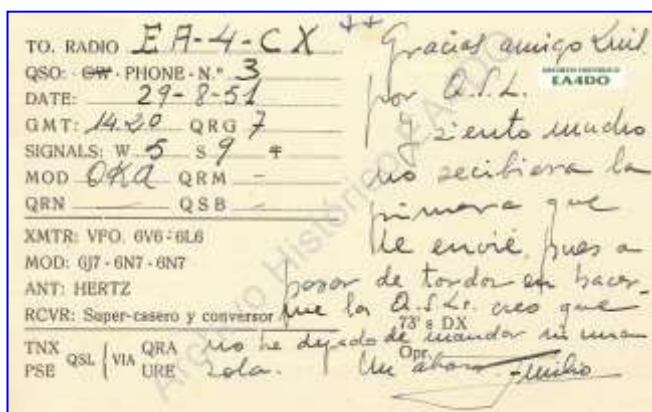 TO. RADIO EA-4-CX
QSO: CW - PHONE - N.º 3
DATE: 29-8-51
GMT: 14.20 QRG 7
SIGNALS: W 5 S 9 +
MOD OKA QRM -
QRN — QSB —
XMTR: VFO. 6V6 - 6L6
MOD: 6J7 - 6N7 - 6N7
ANT: HERTZ
RCVR: Super-casero y conversor
TNX PSE QSL VIA QRA URE
++
Gracias amigo Luis
por Q.S.L.
Y siento mucho
no recibiera la
primera que
le envié, pues a
pesar de tardar en hacer-
me las Q.S.Ls. creo que
73's DX
no he dejado de mandar ni una
Opr.
sola. Un abrazo Emilio
ARCHIVO HISTORICO
EA4DO
Archivo Histórico EA4DO